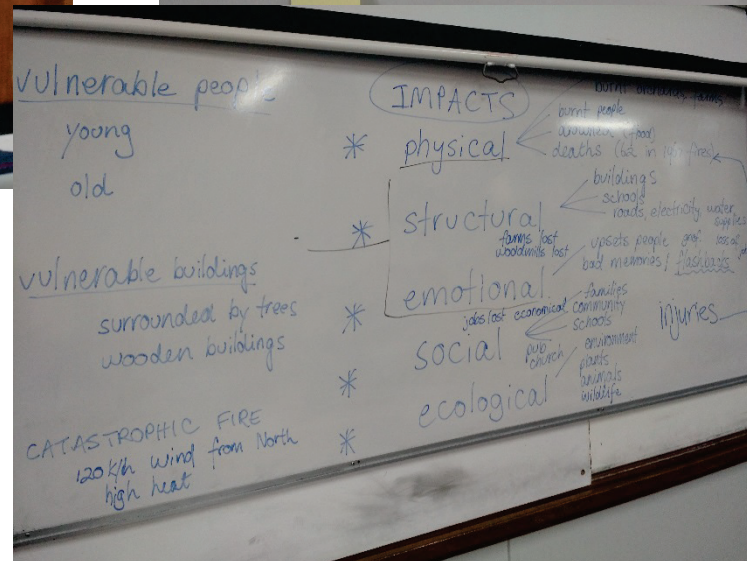 vulnerable people
young
old
vulnerable buildings
surrounded by trees
wooden buildings
CATASTROPHIC FIRE
120 k/h wind from North
high heat
IMPACTS
* physical
burnt
burnt people
deaths
* structural
buildings
schools
roads, electricity, water,
supplies
farms lost
woodmills lost
emotional
upsets people
loss of
bad memories / flashbacks
injuries
* social
jobs lost economical
families
community
schools
pub
church
* ecological
environment
plants
animals
wildlife
*